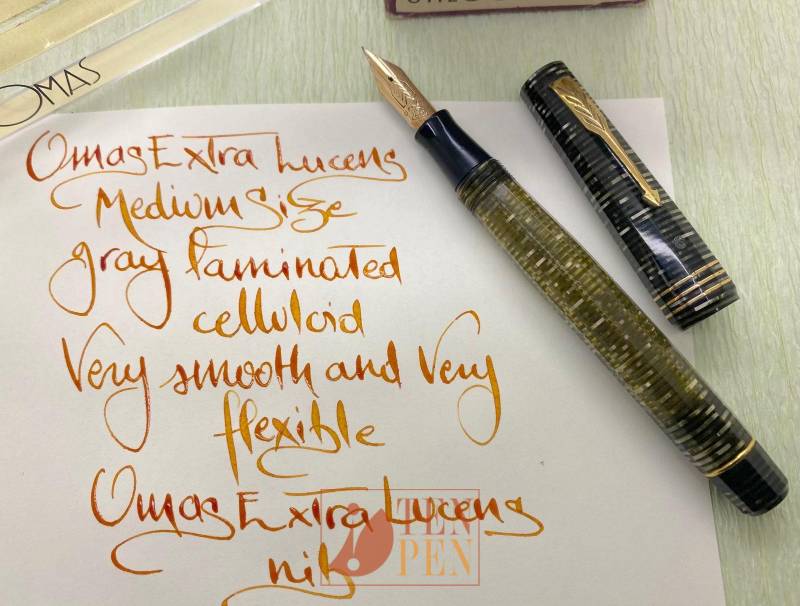 OMAS
Omas Extra Lucens
Medium Size
gray laminated
celluloid
Very smooth and Very
flexible
Omas Extra Lucens
nib
TEN
PEN